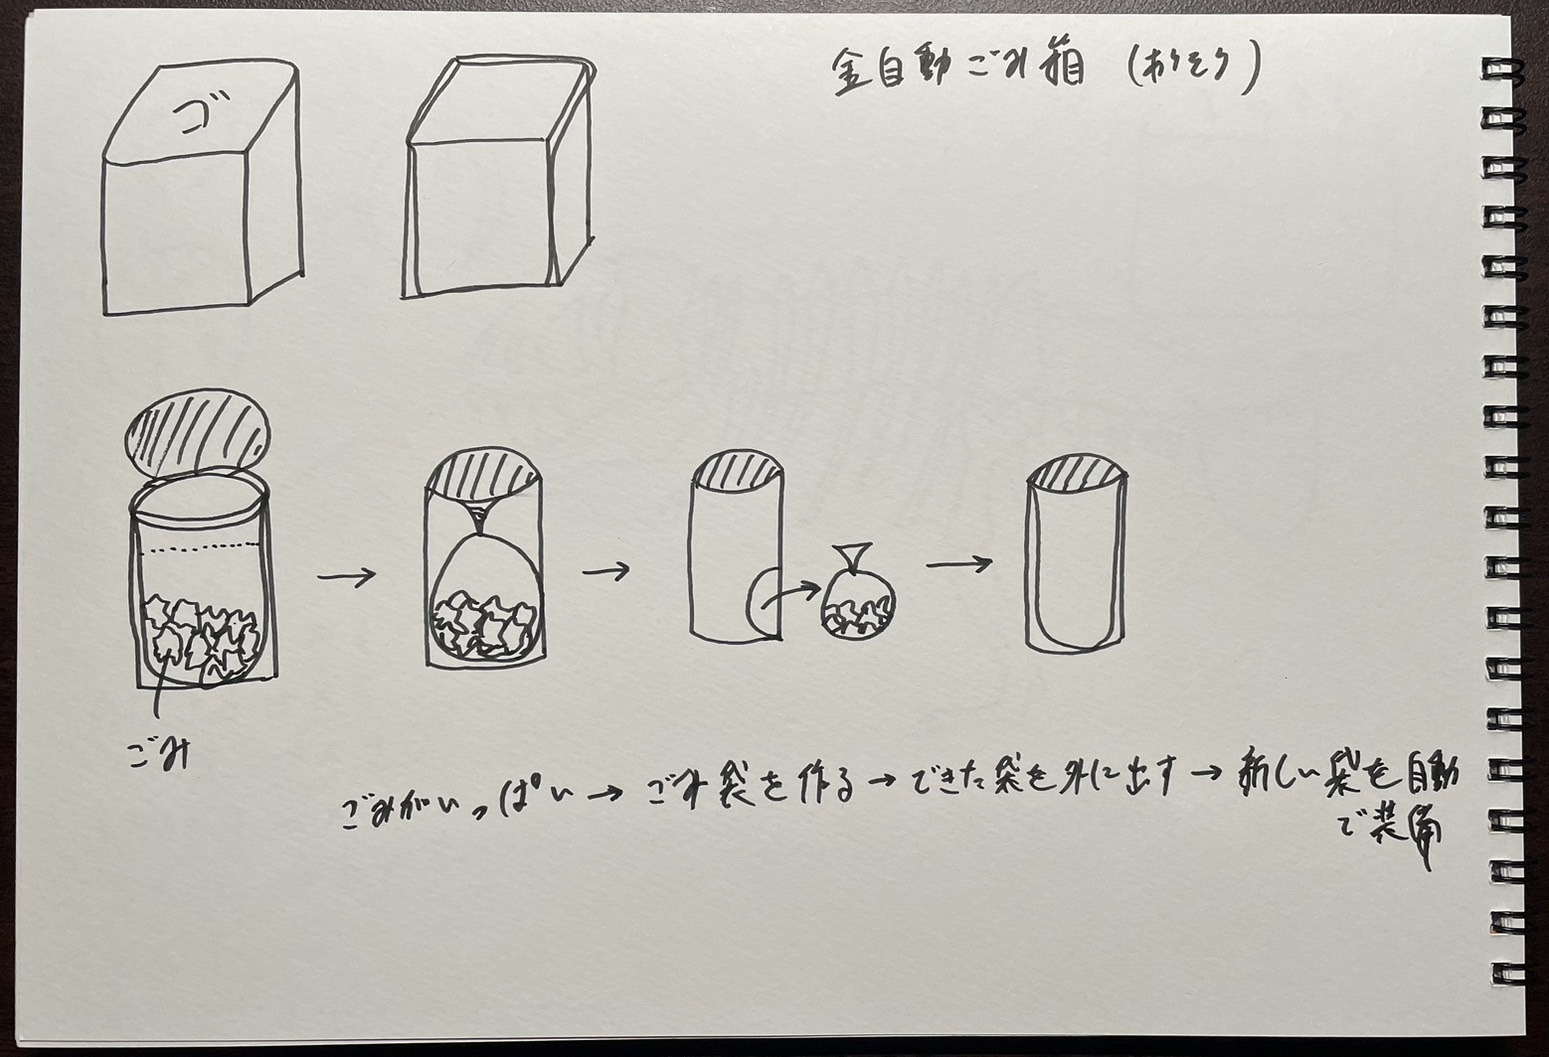 全自動ごみ箱
ゴ
ごみ
ごみがいっぱい→ごみ袋を作る→できた袋を外に出す→新しい袋を自動
で装備